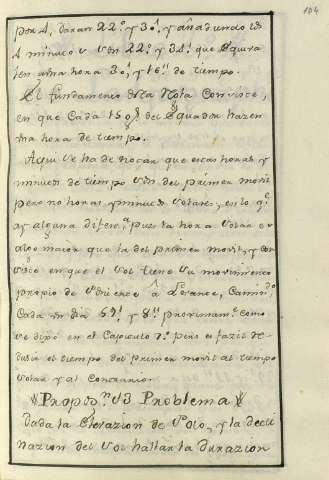 104
por 4, daran 22.º y 30', y añadiendo
4 minutos son 22º y 34' que
hora 30' y 16" de tiempo.
El fundamento desta Nota consiste,
en que cada 15 º del Equador hazen
vna hora de tiempo.
Aqui se ha de notar que estas horas, y
minutos de tiempo son del primer movil
pero no horas, y minutos solares, en lo q.e
ay alguna difer.a pues la hora solar es
algo maior que la del primer movil, y con
siste en que el Sol tiene su movimiento
propio de Poniente â Levante,
Cada un dia 59' y 8" proximam.te como
se dijo en el Capitulo 7.º pero es facil re
dusir el tiempo del primer movil al tiempo
solar y al contrario.
Propos.n V3 Problema
Dada la Elevazion de Polo, y la decli
nazion del Sol hallar la durazion